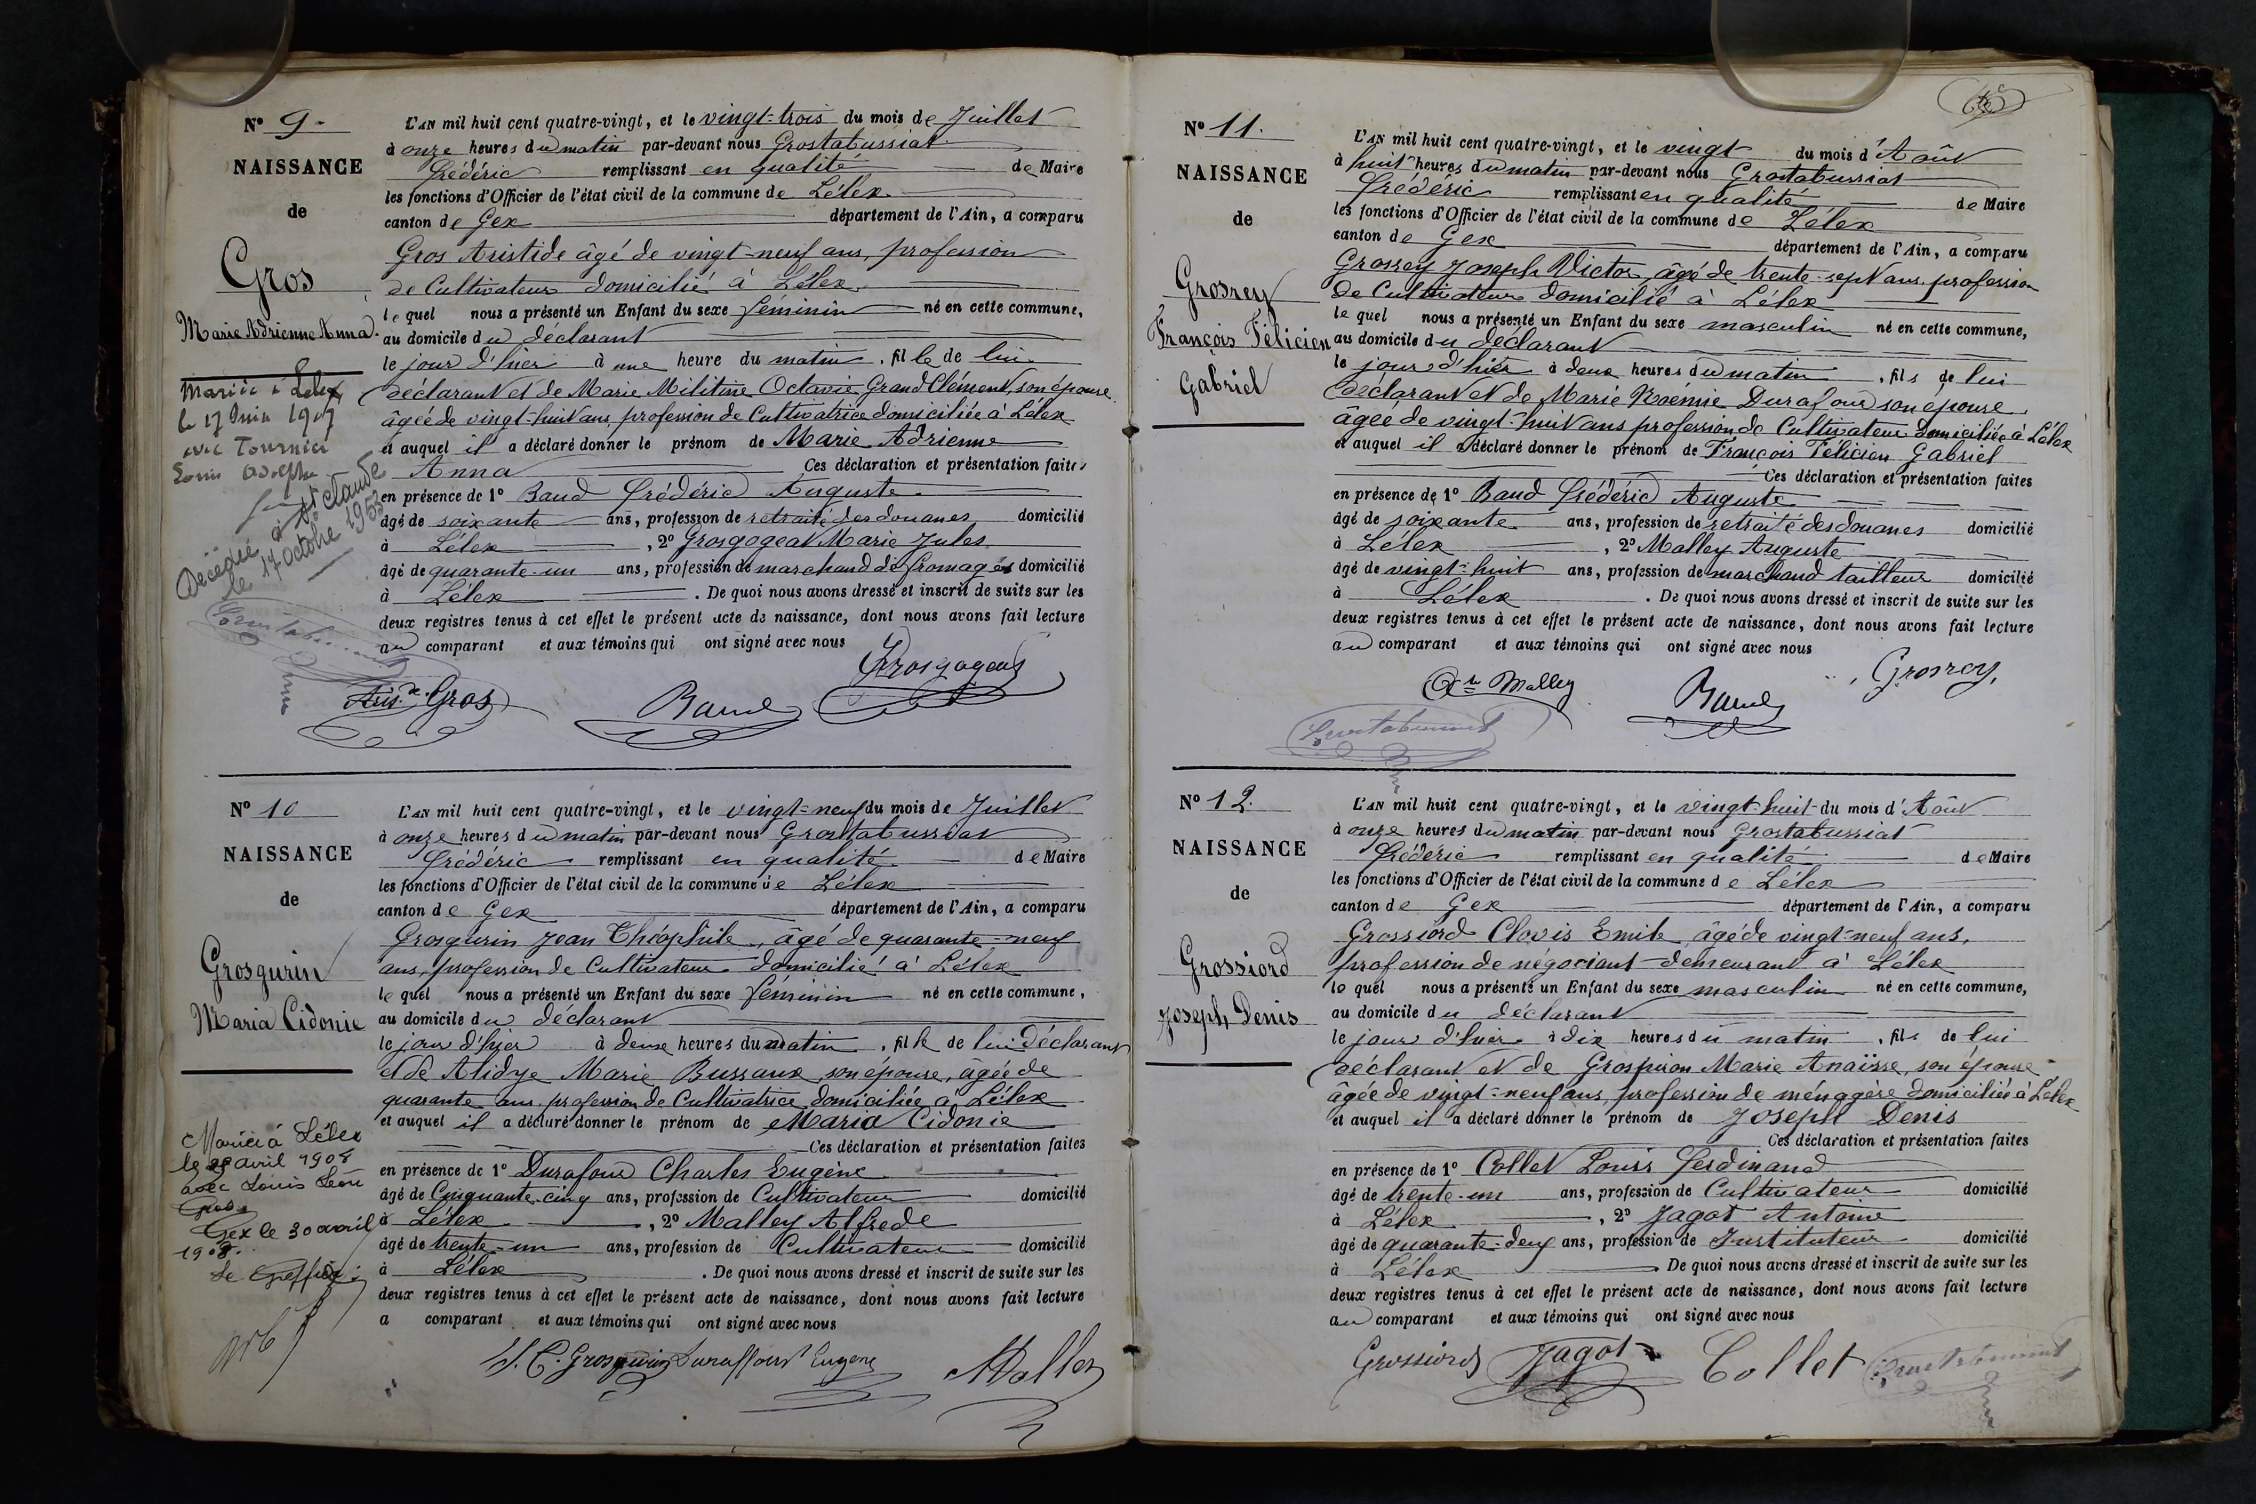 N° 9.
NAISSANCE
de
Gros
Marie Adrienne Anna.
Mariée à Lélex
le 17 Juin 1907
avec Tournier
Louis Adolphe
Décédée à St Claude
le 17 octobre 1953
L'AN mil huit cent quatre-vingt, et le vingt-trois du mois de Juillet
à onze heures du matin par-devant nous Grostabussiat
Frédéric remplissant en qualité de Maire
les fonctions d'Officier de l'état civil de la commune de Lélex
canton de Gex département de l'Ain, a comparu
Gros Aristide âgé de vingt-neuf ans, profession
de Cultivateur domicilié à Lélex.
le quel nous a présenté un Enfant du sexe féminin né en cette commune,
au domicile du déclarant
le jour d'hier à une heure du matin, fille de lui
déclarant et de Marie Militine Octavie GrandClément, son épouse
âgée de vingt-huit ans, profession de Cultivatrice domiciliée à Lélex
et auquel il a déclaré donner le prénom de Marie Adrienne
Anna Ces déclaration et présentation faites
en présence de 1° Baud Frédéric Auguste
âgé de soixante ans, profession de retraité des douanes domicilié
à Lélex, 2° Grosgogeat Marie Jules
âgé de quarante-un ans, profession de marchand de fromages domicilié
à Lélex. De quoi nous avons dressé et inscrit de suite sur les
deux registres tenus à cet effet le présent acte de naissance, dont nous avons fait lecture
au comparant et aux témoins qui ont signé avec nous
Grosgogeat
Aris.de Gros Baud
N° 10
NAISSANCE
de
Grosgurin
Maria Cidonie
Mariée à Lélex
le avril 1908
avec Louis Léon
Gros
Gex le 30 avril
1908.
Le Greffier
L'AN mil huit cent quatre-vingt, et le vingt-neuf du mois de Juillet
à onze heures du matin par-devant nous Grostabussiat
Frédéric remplissant en qualité de Maire
les fonctions d'Officier de l'état civil de la commune de Lélex
canton de Gex département de l'Ain, a comparu
Grosgurin Jean Théophile, âgé de quarante-neuf
ans, profession de Cultivateur domicilié à Lélex
le quel nous a présenté un Enfant du sexe féminin né en cette commune,
au domicile du déclarant
le jour d'hier à deux heures du matin, fille de lui déclarant
et de Alidye Marie Bussaux, son épouse, âgée de
quarante ans, profession de Cultivatrice domiciliée à Lélex
et auquel il a déclaré donner le prénom de Maria Cidonie
Ces déclaration et présentation faites
en présence de 1° Durafour Charles Eugène
âgé de Cinquante-cinq ans, profession de Cultivateur domicilié
à Lélex, 2° Malley Alfrede
âgé de trente-un ans, profession de Cultivateur domicilié
à Lélex. De quoi nous avons dressé et inscrit de suite sur les
deux registres tenus à cet effet le présent acte de naissance, dont nous avons fait lecture
a comparant et aux témoins qui ont signé avec nous
Grosgurin Duraffourt Eugene Malley
N° 11.
NAISSANCE
de
Grosrey
François Félicien
Gabriel
L'AN mil huit cent quatre-vingt, et le vingt du mois d'Août
à huit heures du matin par-devant nous Grostabussiat
Frédéric remplissant en qualité de Maire
les fonctions d'Officier de l'état civil de la commune de Lélex
canton de Gex département de l'Ain, a comparu
Grosrey Joseph Victor, âgé de trente-sept ans, profession
de Cultivateur domicilié à Lélex
le quel nous a présenté un Enfant du sexe masculin né en cette commune,
au domicile du déclarant
le jour d'hier à deux heures du matin, fils de lui
déclarant et de Marie Noémie Durafour son épouse
âgée de vingt-huit ans profession de Cultivateur domiciliée à Lélex
et auquel il a déclaré donner le prénom de François Félicien Gabriel
Ces déclaration et présentation faites
en présence de 1° Baud Frédéric Auguste
âgé de soixante ans, profession de retraité des douanes domicilié
à Lélex, 2° Malley Auguste
âgé de vingt-huit ans, profession de marchand tailleur domicilié
à Lélex. De quoi nous avons dressé et inscrit de suite sur les
deux registres tenus à cet effet le présent acte de naissance, dont nous avons fait lecture
au comparant et aux témoins qui ont signé avec nous
Malley Baud Grosrey
Grostabussiat
N° 12.
NAISSANCE
de
Grossiord
Joseph Denis
L'AN mil huit cent quatre-vingt, et le vingt-huit du mois d'Août
à onze heures du matin par-devant nous Grostabussiat
Frédéric remplissant en qualité de Maire
les fonctions d'Officier de l'état civil de la commune de Lélex
canton de Gex département de l'Ain, a comparu
Grossiord Clovis Emile, âgé de vingt-neuf ans,
profession de négociant demeurant à Lélex
le quel nous a présenté un Enfant du sexe masculin né en cette commune,
au domicile du déclarant
le jour d'hier à dix heures du matin, fils de lui
déclarant et de Grospiron Marie Anaïsse, son épouse
âgée de vingt-neuf ans, profession de ménagère domiciliée à Lélex
et auquel il a déclaré donner le prénom de Joseph Denis
Ces déclaration et présentation faites
en présence de 1° Collet Louis Ferdinand
âgé de trente-un ans, profession de Cultivateur domicilié
à Lélex, 2° Jagot Antoine
âgé de quarante-deux ans, profession de Instituteur domicilié
à Lélex De quoi nous avons dressé et inscrit de suite sur les
deux registres tenus à cet effet le présent acte de naissance, dont nous avons fait lecture
au comparant et aux témoins qui ont signé avec nous
Grossiord Jagot Collet Grostabussiat